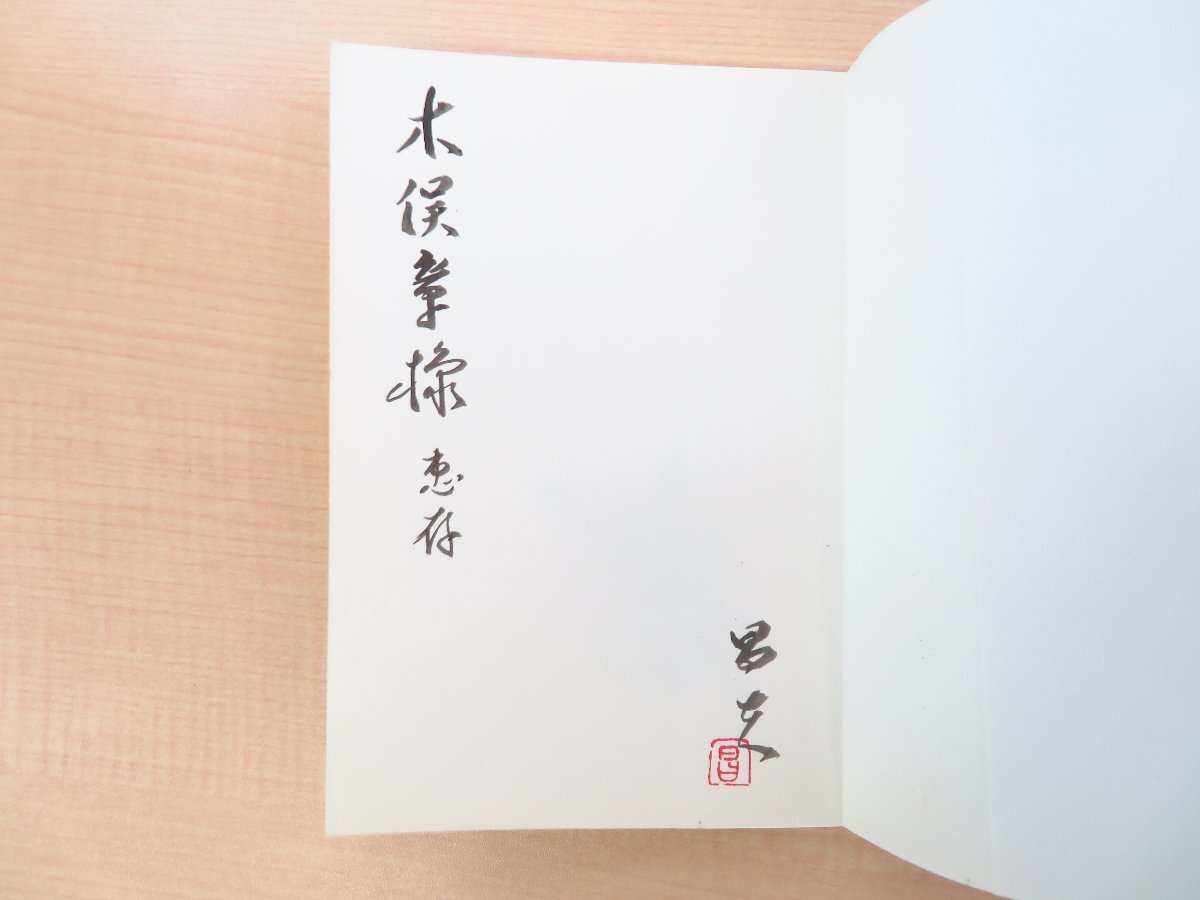 木俣章様 恵存
昌夫
昌